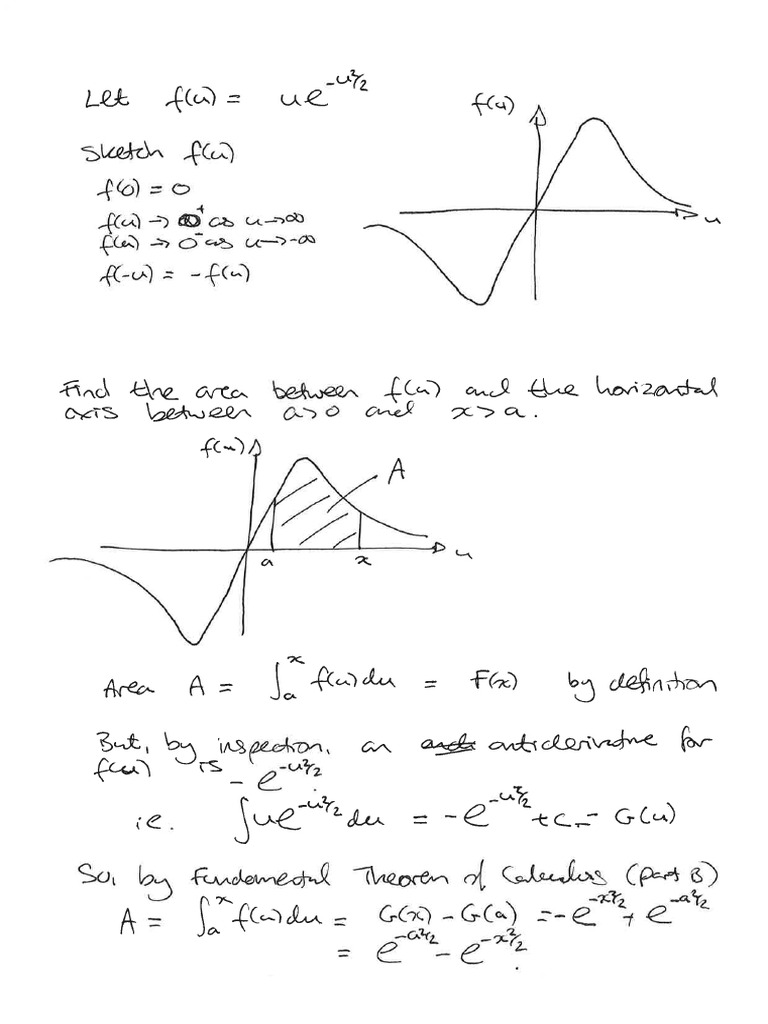 Let f(u) = ue^{-u²/2}
f(u)
Sketch f(u)
f(0) = 0
f(u) → 0⁺ as u→∞
f(u) → 0⁻ as u→-∞
f(-u) = -f(u)
u
Find the area between f(u) and the horizontal
axis between a>0 and x>a.
f(u)
A
a
x
u
Area A = ∫_a^x f(u)du = F(x) by definition
But, by inspection, an antiderivative for
f(u) is -e^{-u²/2}.
i.e. ∫ue^{-u²/2}du = -e^{-u²/2}+c = G(u)
So, by Fundamental Theorem of Calculus (part B)
A = ∫_a^x f(u)du = G(x) - G(a) = -e^{-x²/2} + e^{-a²/2}
= e^{-a²/2} - e^{-x²/2}.